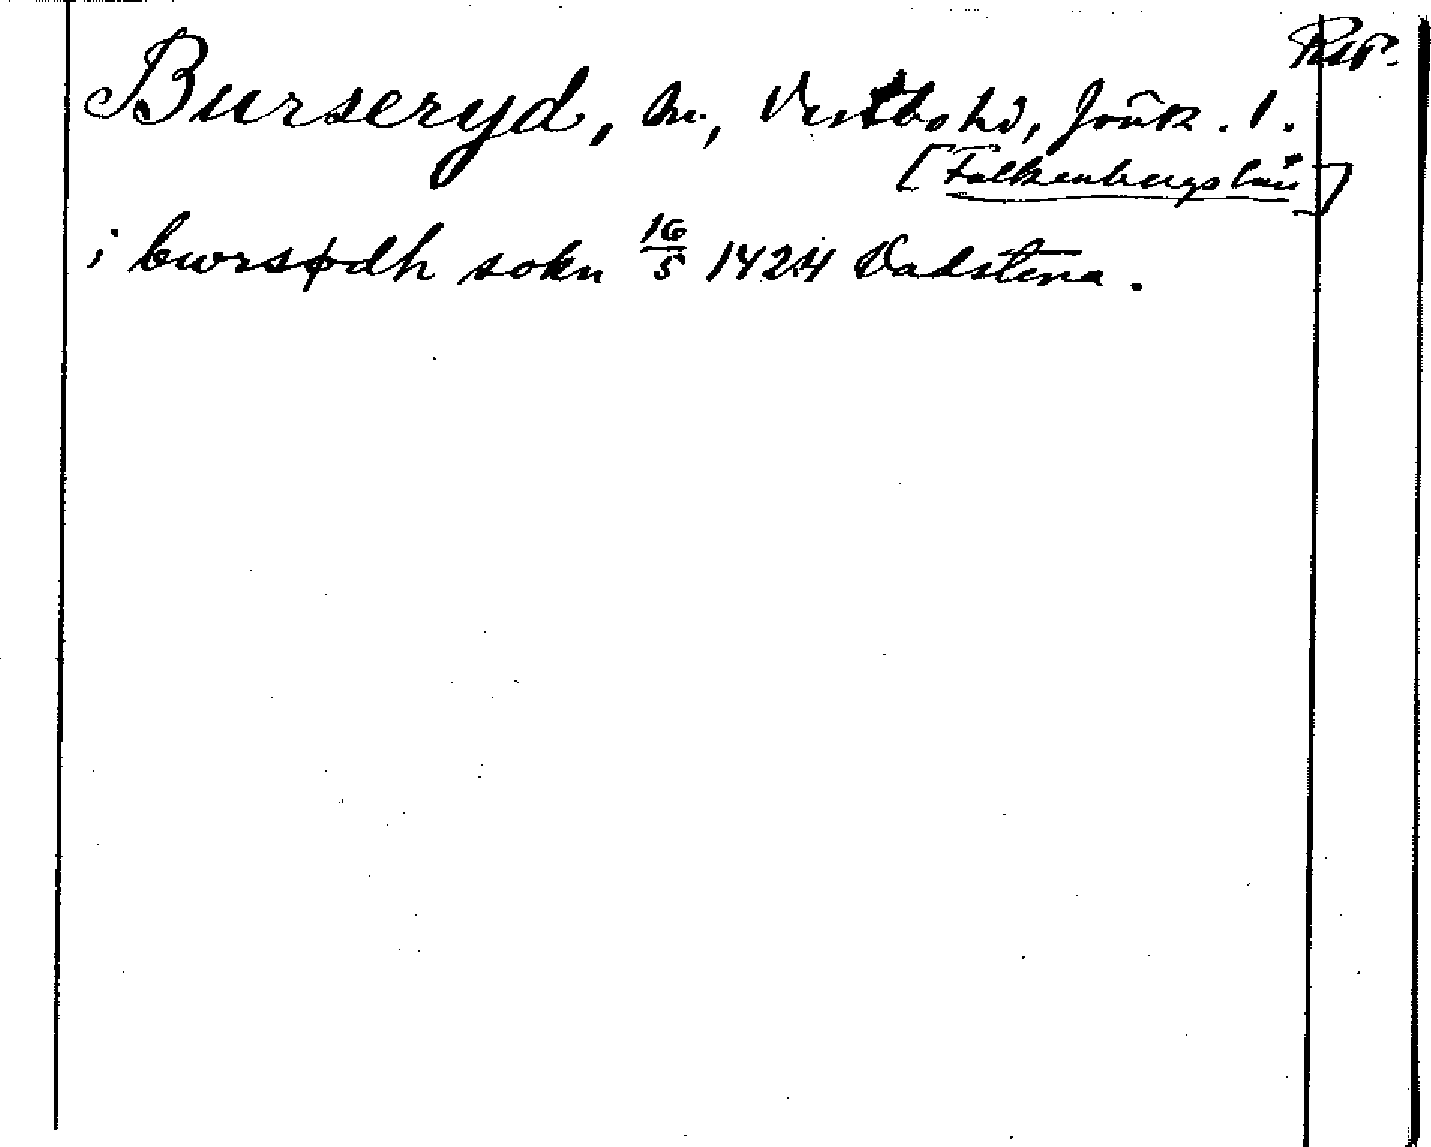 Rap.
Burseryd, sn., Västbo hd, Jönk. l.
[Falkenbergs län]
i bwrsødh sokn 16/5 1424 Vadstena.